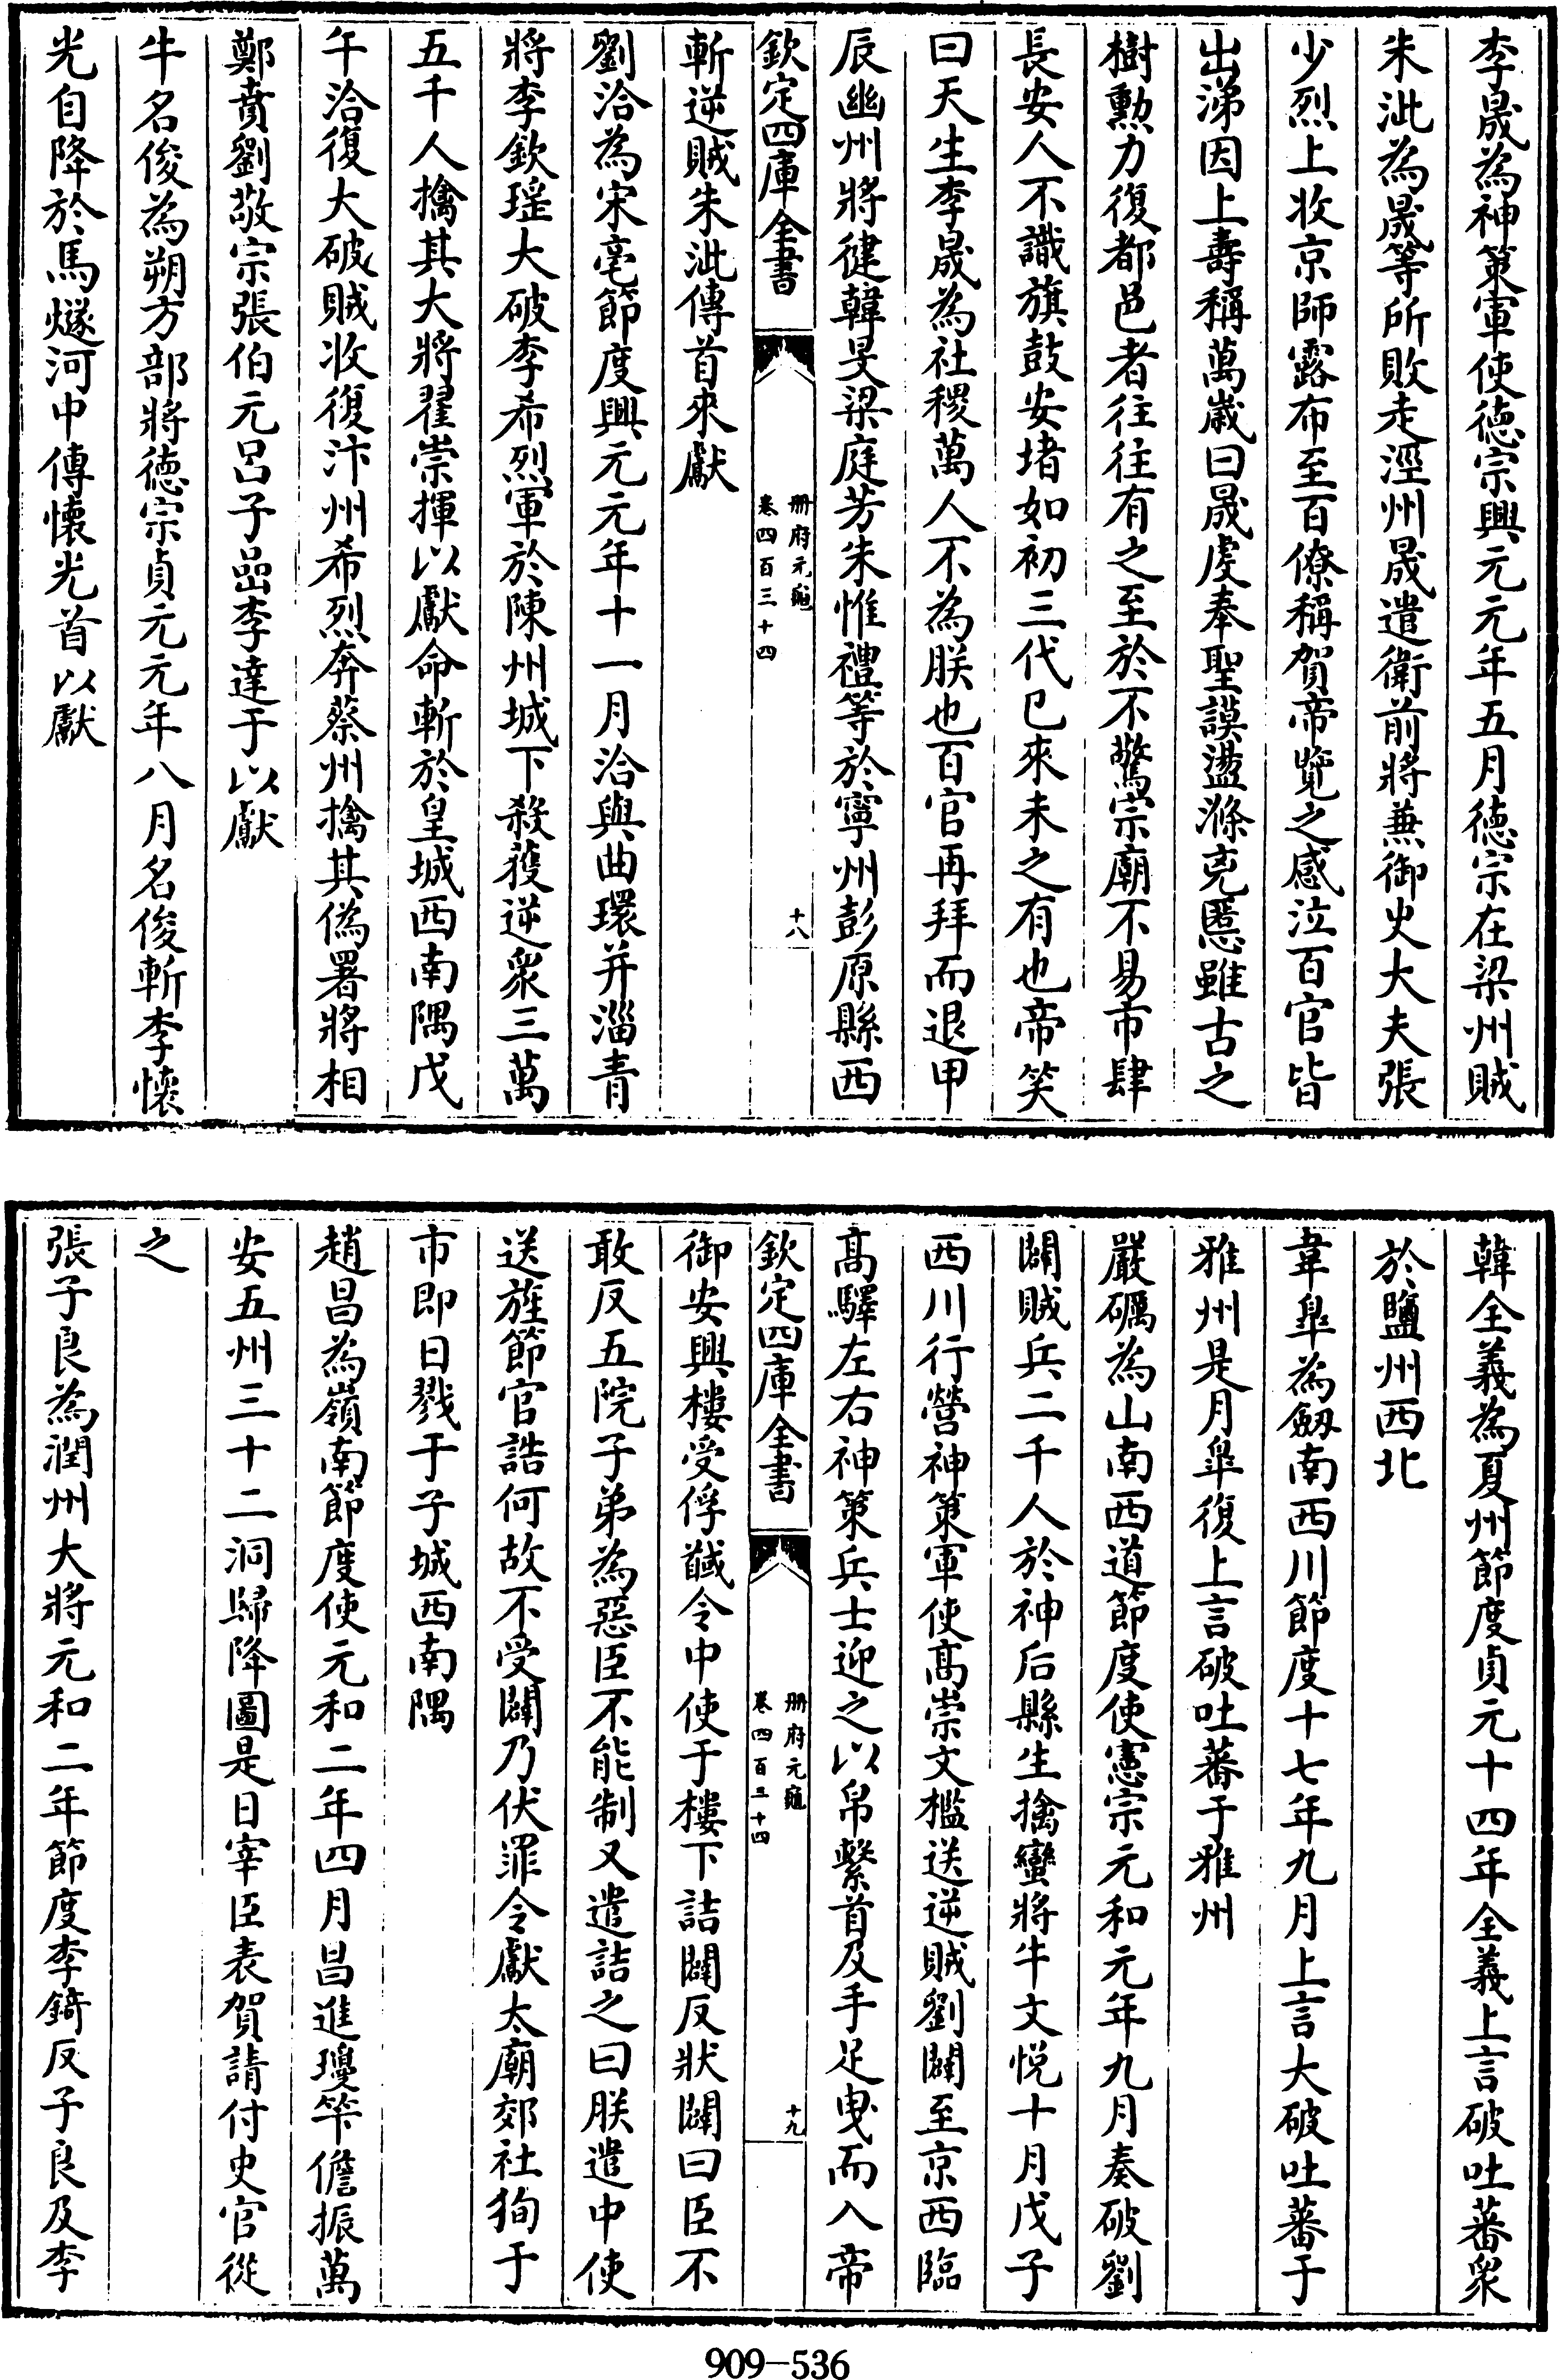 李晟為神策軍使德宗興元元年五月德宗在梁州賊
朱泚為晟等所敗走涇州晟遣衛前將兼御史大夫張
少烈上收京師露布至百僚稱賀帝覽之感泣百官皆
出涕因上壽稱萬歲曰晟虔奉聖謨盪滌兇慝雖古之
樹勲力復都邑者往往有之至於不驚宗廟不易市肆
長安人不識旗鼓安堵如初三代已來未之有也帝笑
曰天生李晟為社稷萬人不為朕也百官再拜而退甲
辰幽州將健韓旻梁庭芳朱惟禮等於寧州彭原縣西
欽定四庫全書
册府元龜
卷四百三十四
十八
斬逆賊朱泚傳首來獻
劉洽為宋亳節度興元元年十一月洽與曲環并淄青
將李欽瑤大破李希烈軍於陳州城下殺獲逆衆三萬
五千人擒其大將翟崇揮以獻命斬於皇城西南隅戊
午洽復大破賊收復汴州希烈奔蔡州擒其偽署將相
鄭賁劉敬宗張伯元吕子嵒李達于以獻
牛名俊為朔方部將德宗貞元元年八月名俊斬李懷
光自降於馬燧河中傳懷光首以獻
韓全義為夏州節度貞元十四年全義上言破吐蕃衆
於鹽州西北
韋臯為劒南西川節度十七年九月上言大破吐蕃于
雅州是月臯復上言破吐蕃于雅州
嚴礪為山南西道節度使憲宗元和元年九月奏破劉
闢賊兵二千人於神后縣生擒蠻將牛文悦十月戊子
西川行營神策軍使高崇文檻送逆賊劉闢至京西臨
高驛左右神策兵士迎之以帛繫首及手足曳而入帝
欽定四庫全書
册府元龜
卷四百三十四
十九
御安興樓受俘馘令中使于樓下詰闢反狀闢曰臣不
敢反五院子弟為惡臣不能制又遣詰之曰朕遣中使
送旌節官誥何故不受闢乃伏罪令獻太廟郊社狥于
市即日戮于子城西南隅
趙昌為嶺南節度使元和二年四月昌進瓊筦儋振萬
安五州三十二洞歸降圖是日宰臣表賀請付史官從
之
張子良為潤州大將元和二年節度李錡反子良及李
909-536